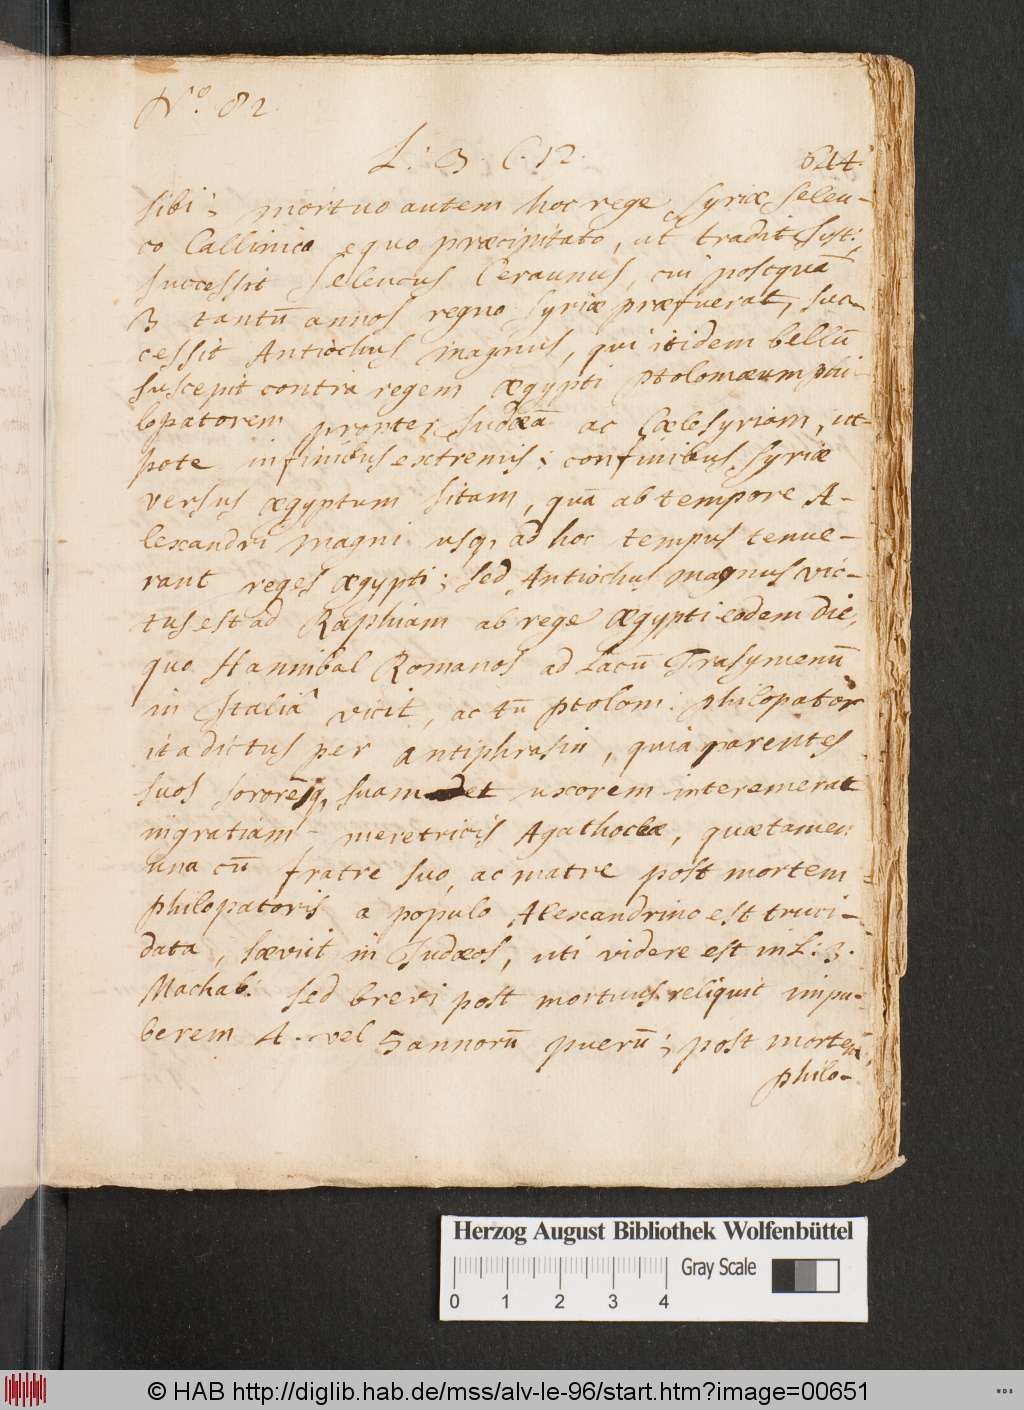 N.o 82
L: 3. C. 12. 644.
sibi; mortuo autem hoc rege Syriæ Seleu-
co Callinico equo præcipitato, ut tradit Just:
successit Seleucus Ceraunus, cui postquā
3 tantū annos regno Syriæ præfuerat, suc-
cessit Antiochus magnus, qui itidem bellū
suscepit contra regem Ægypti Ptolomæum phi-
lopatorem propter Judæā ac Cœlesyriam, ut-
pote in finibus extremis; confinibus Syriæ
versus Ægyptum sitam, quā ab tempore A-
lexandri magni usq, ad hoc tempus tenue-
rant reges Ægypti; sed Antiochus magnus vic-
tus est ad Raphiam ab rege Ægypti eodem die,
quo Hannibal Romanos ad Lacū Trasymenū
in Italiâ vicit, ac tū Ptolom: philopator
ita dictus per antiphrasin, quia parentes
suos sororēq, suam et uxorem interemerat
in gratiam meretricis Agathoclæ, quæ tamen
una cū fratre suo, ac matre post mortem
philopatoris a populo Alexandrino est truci-
data, sæviit in Judæos, uti videre est in L: 3.
Machab: sed brevi post mortuus reliquit impu-
berem 4. vel 5 annorū puerū; post mortem
philo-
Herzog August Bibliothek Wolfenbüttel
Gray Scale
0 1 2 3 4
© HAB http://diglib.hab.de/mss/alv-le-96/start.htm?image=00651